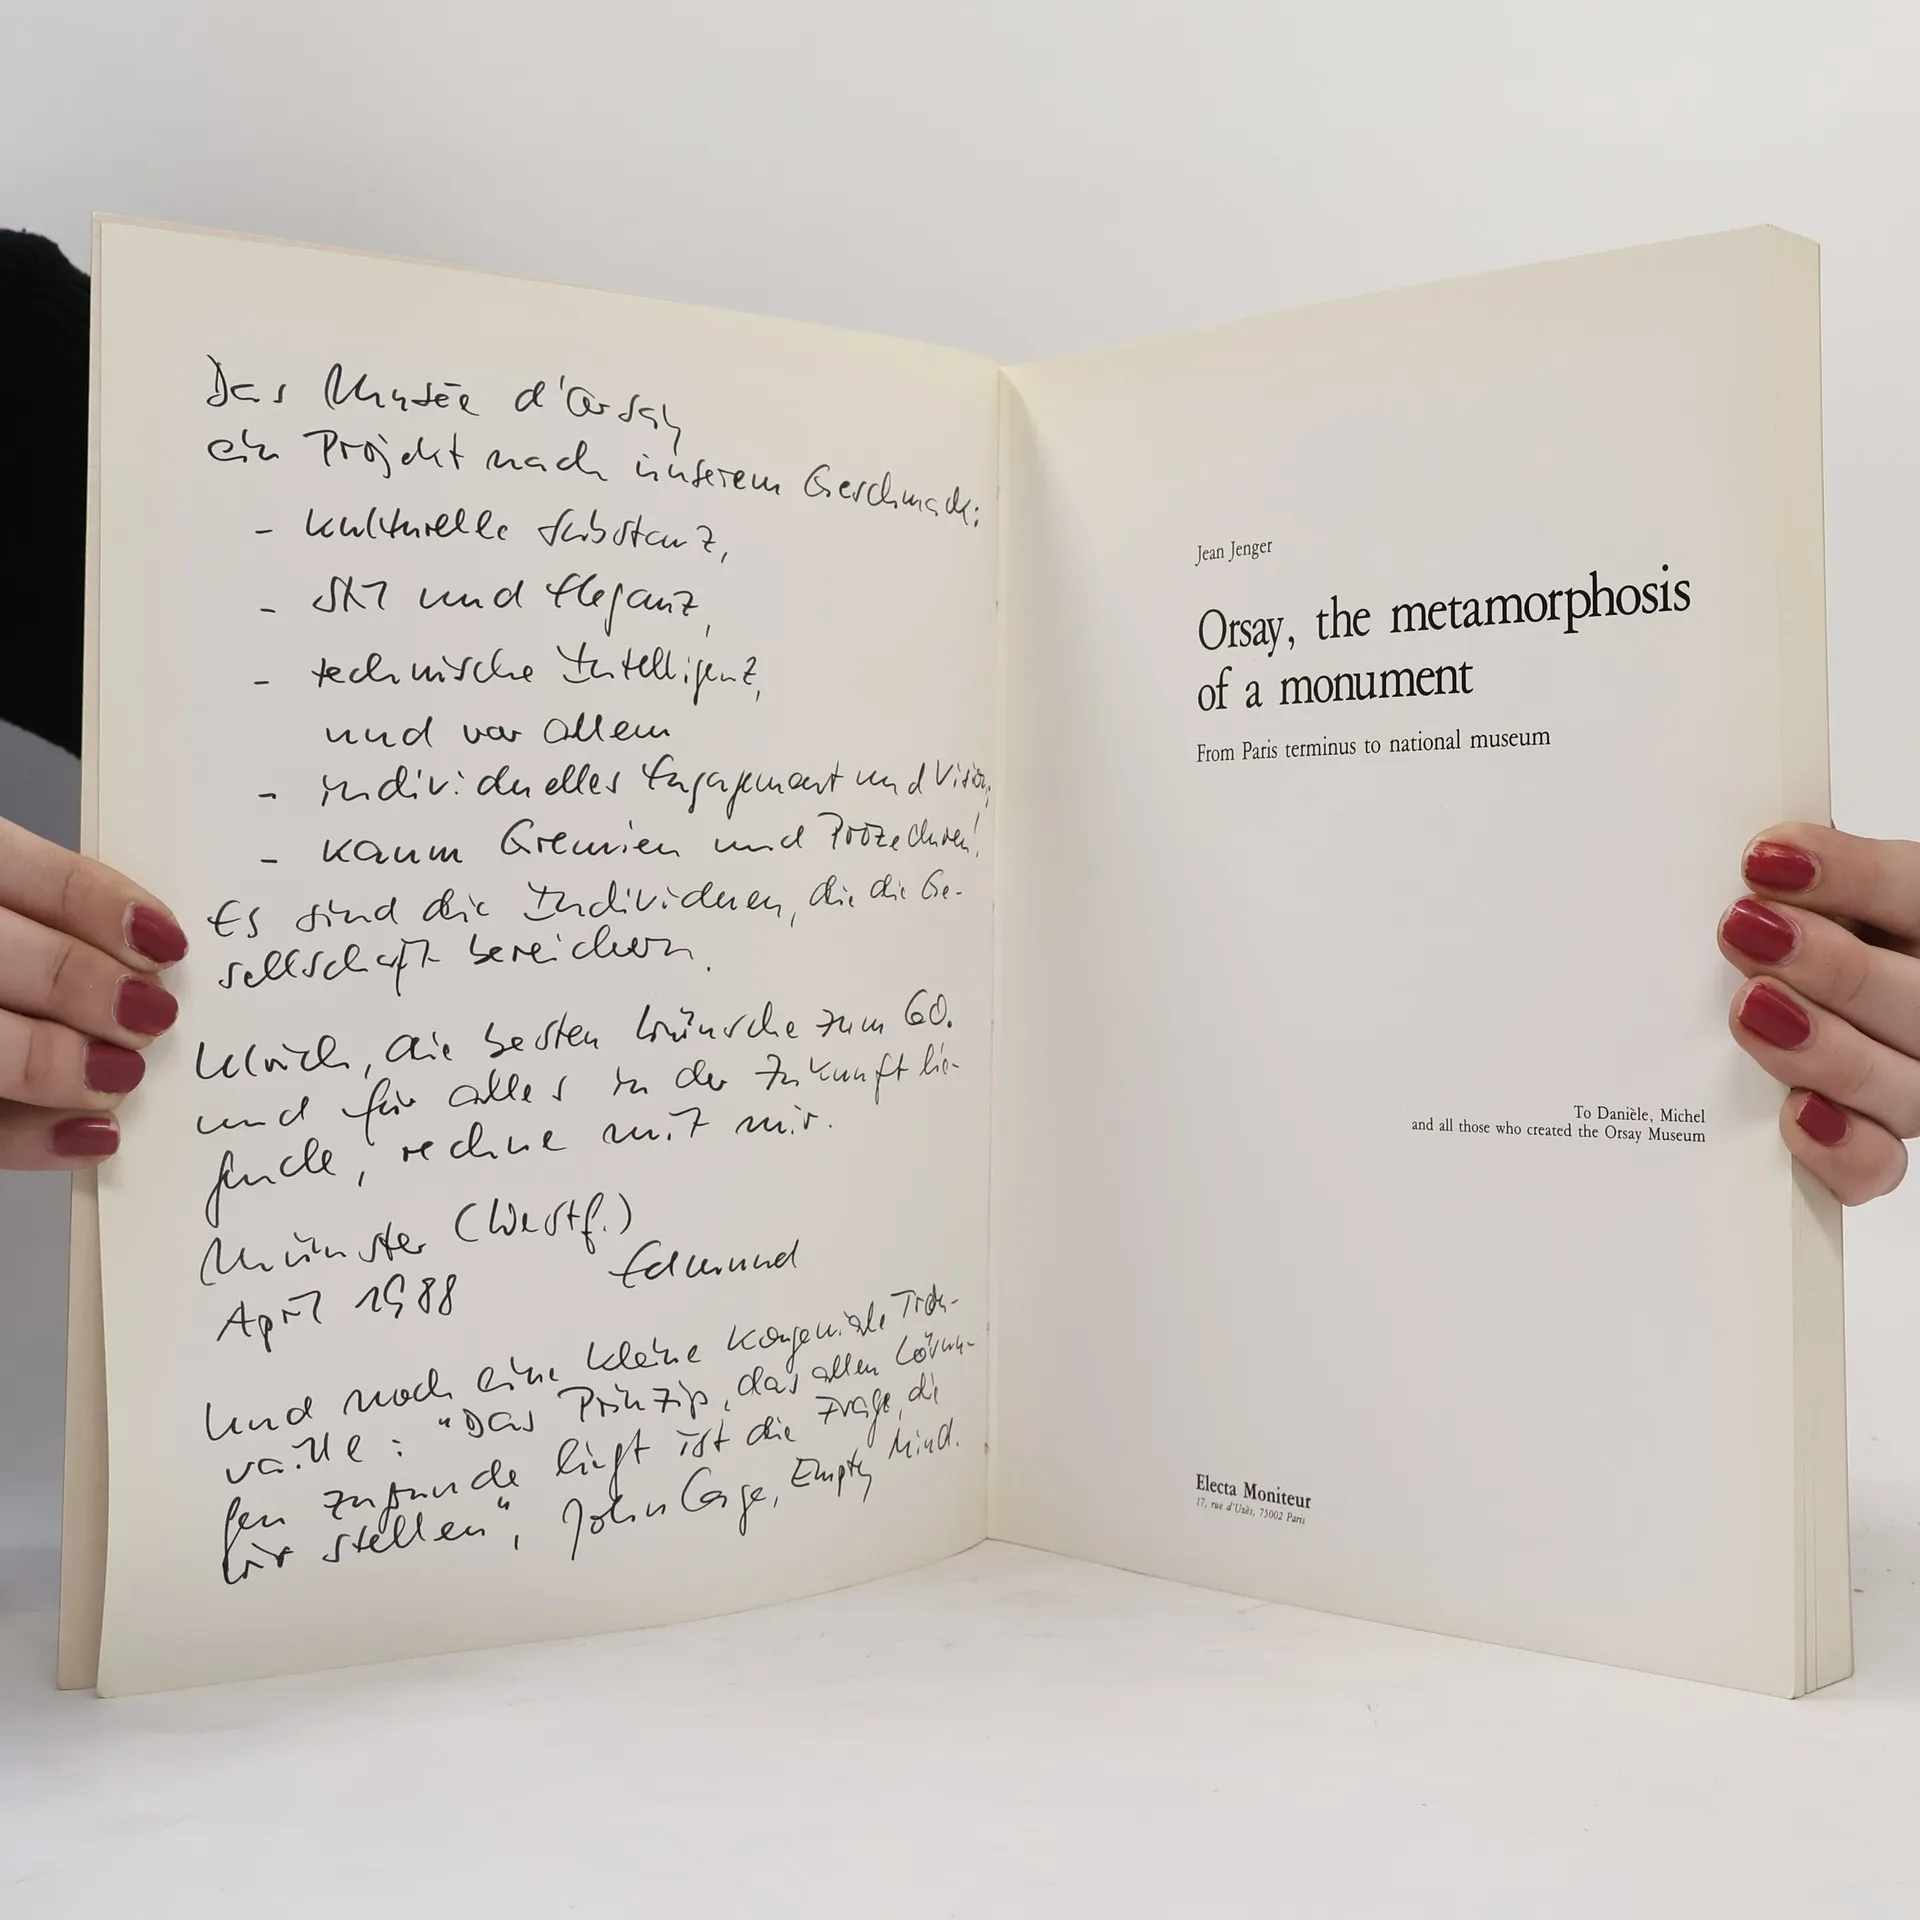 Das Musée d'Orsay
ein Projekt nach unserem Geschmack:
- kulturelle Substanz,
- Stil und Eleganz,
- technische Intelligenz,
und vor allem
- individuelles Engagement und Vision,
- kaum Gremien und Prozeduren!
Es sind die Individuen, die die Ge-
sellschaft bereichern.
Ulrich, die besten Wünsche zum 60.
und für alles in der Zukunft lie-
gende, rechne mit mir.
Münster (Westf.)
Edmund
April 1988
Und noch eine kleine kongeniale Trou-
vaille: "Das Prinzip, das allen Lösun-
gen zugrunde liegt ist die Frage, die
wir stellen", John Cage, Empty Mind.
Jean Jenger
Orsay, the metamorphosis
of a monument
From Paris terminus to national museum
To Danièle, Michel
and all those who created the Orsay Museum
Electa Moniteur
17, rue d'Uzès, 75002 Paris